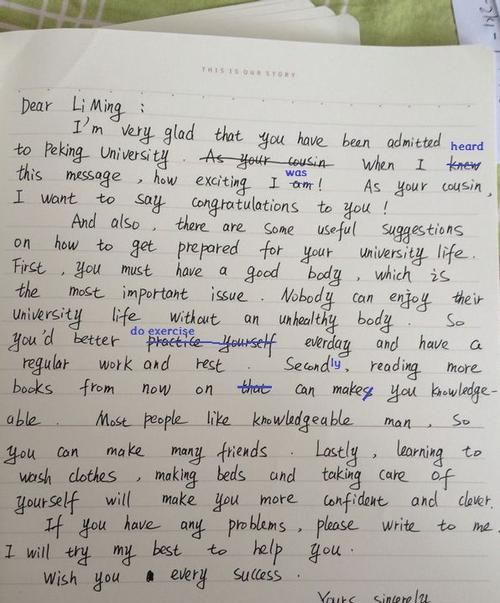 THIS IS OUR STORY
Dear Li Ming :
I'm very glad that you have been admitted
heard
to Peking University . As your cousin When I knew
was
this message , how exciting I am ! As your cousin ,
I want to say congratulations to you !
And also , there are some useful suggestions
on how to get prepared for your university life .
First , you must have a good body , which is
the most important issue . Nobody can enjoy their
university life without an unhealthy body . So
do exercise
you'd better practice yourself everday and have a
regular work and rest . Secondly, reading more
books from now on that can makes you knowledge-
able . Most people like knowledgeable man , So
you can make many friends . Lastly , learning to
wash clothes , making beds and taking care of
yourself will make you more confident and clever.
If you have any problems , please write to me .
I will try my best to help you .
Wish you every success .
Yours sincerely